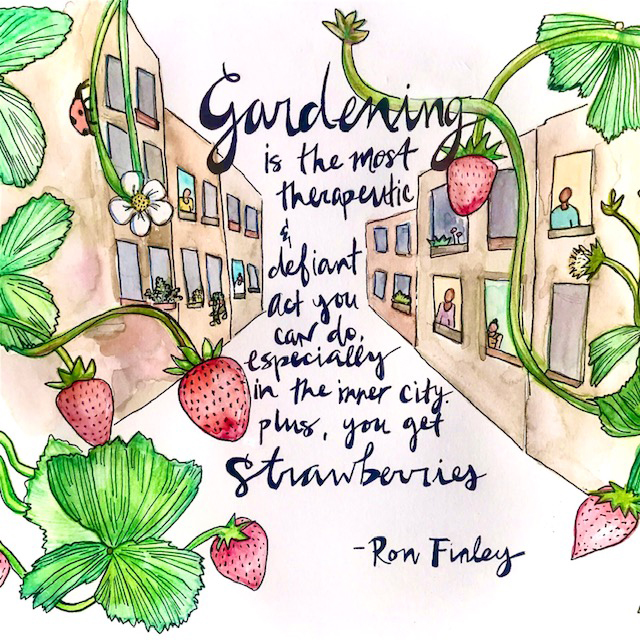 Gardening
is the most
therapeutic
&
defiant
act you
can do,
especially
in the inner city.
plus, you get
strawberries
-Ron Finley